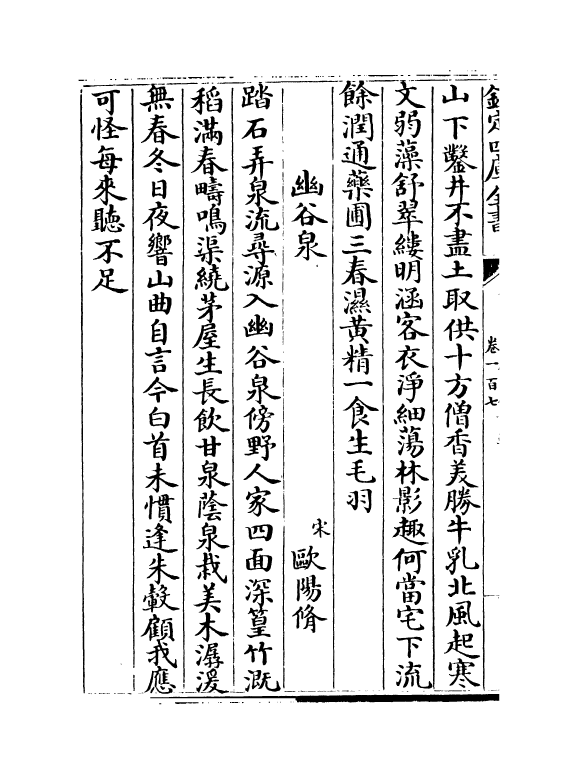 欽定四庫全書
卷一百七
山下鑿井不盡土取供十方僧香美勝牛乳北風起寒
文弱藻舒翠縷明涵客衣淨細蕩林影趣何當宅下流
餘潤通藥圃三春濕黄精一食生毛羽
幽谷泉
宋歐陽脩
踏石弄泉流尋源入幽谷泉傍野人家四面深篁竹溉
稻滿春疇鳴渠繞茅屋生長飲甘泉蔭泉栽美木潺湲
無春冬日夜響山曲自言今白首未慣逢朱轂顧我應
可怪每來聽不足